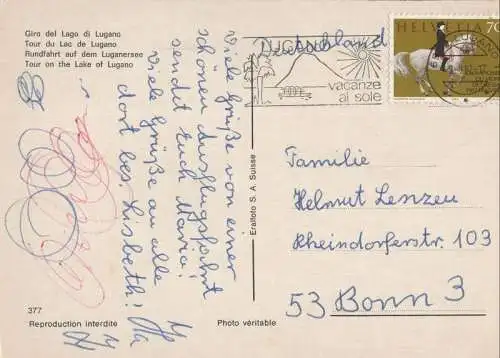 Giro del Lago di Lugano
Tour du Lac de Lugano
Rundfahrt auf dem Luganersee
Tour on the Lake of Lugano
Viele Grüße von einer
schönen Ausflugsfahrt
sendet Euch Maria!
Viele Grüße an alle
dort bes. Lisbeth!
377
Reproduction interdite
Photo véritable
Eralfoto S. A. Suisse
Deutschland
LUGANO
vacanze
al sole
HELVETIA 70
Familie
Helmut Lenzen
Rheindorferstr. 103
53 Bonn 3